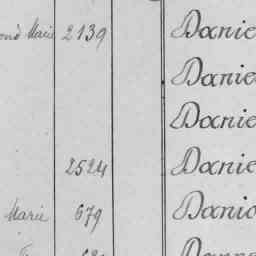 ond Marie 2139 Danie
Danie
Danie
2524 Danie
Marie 679 Danio